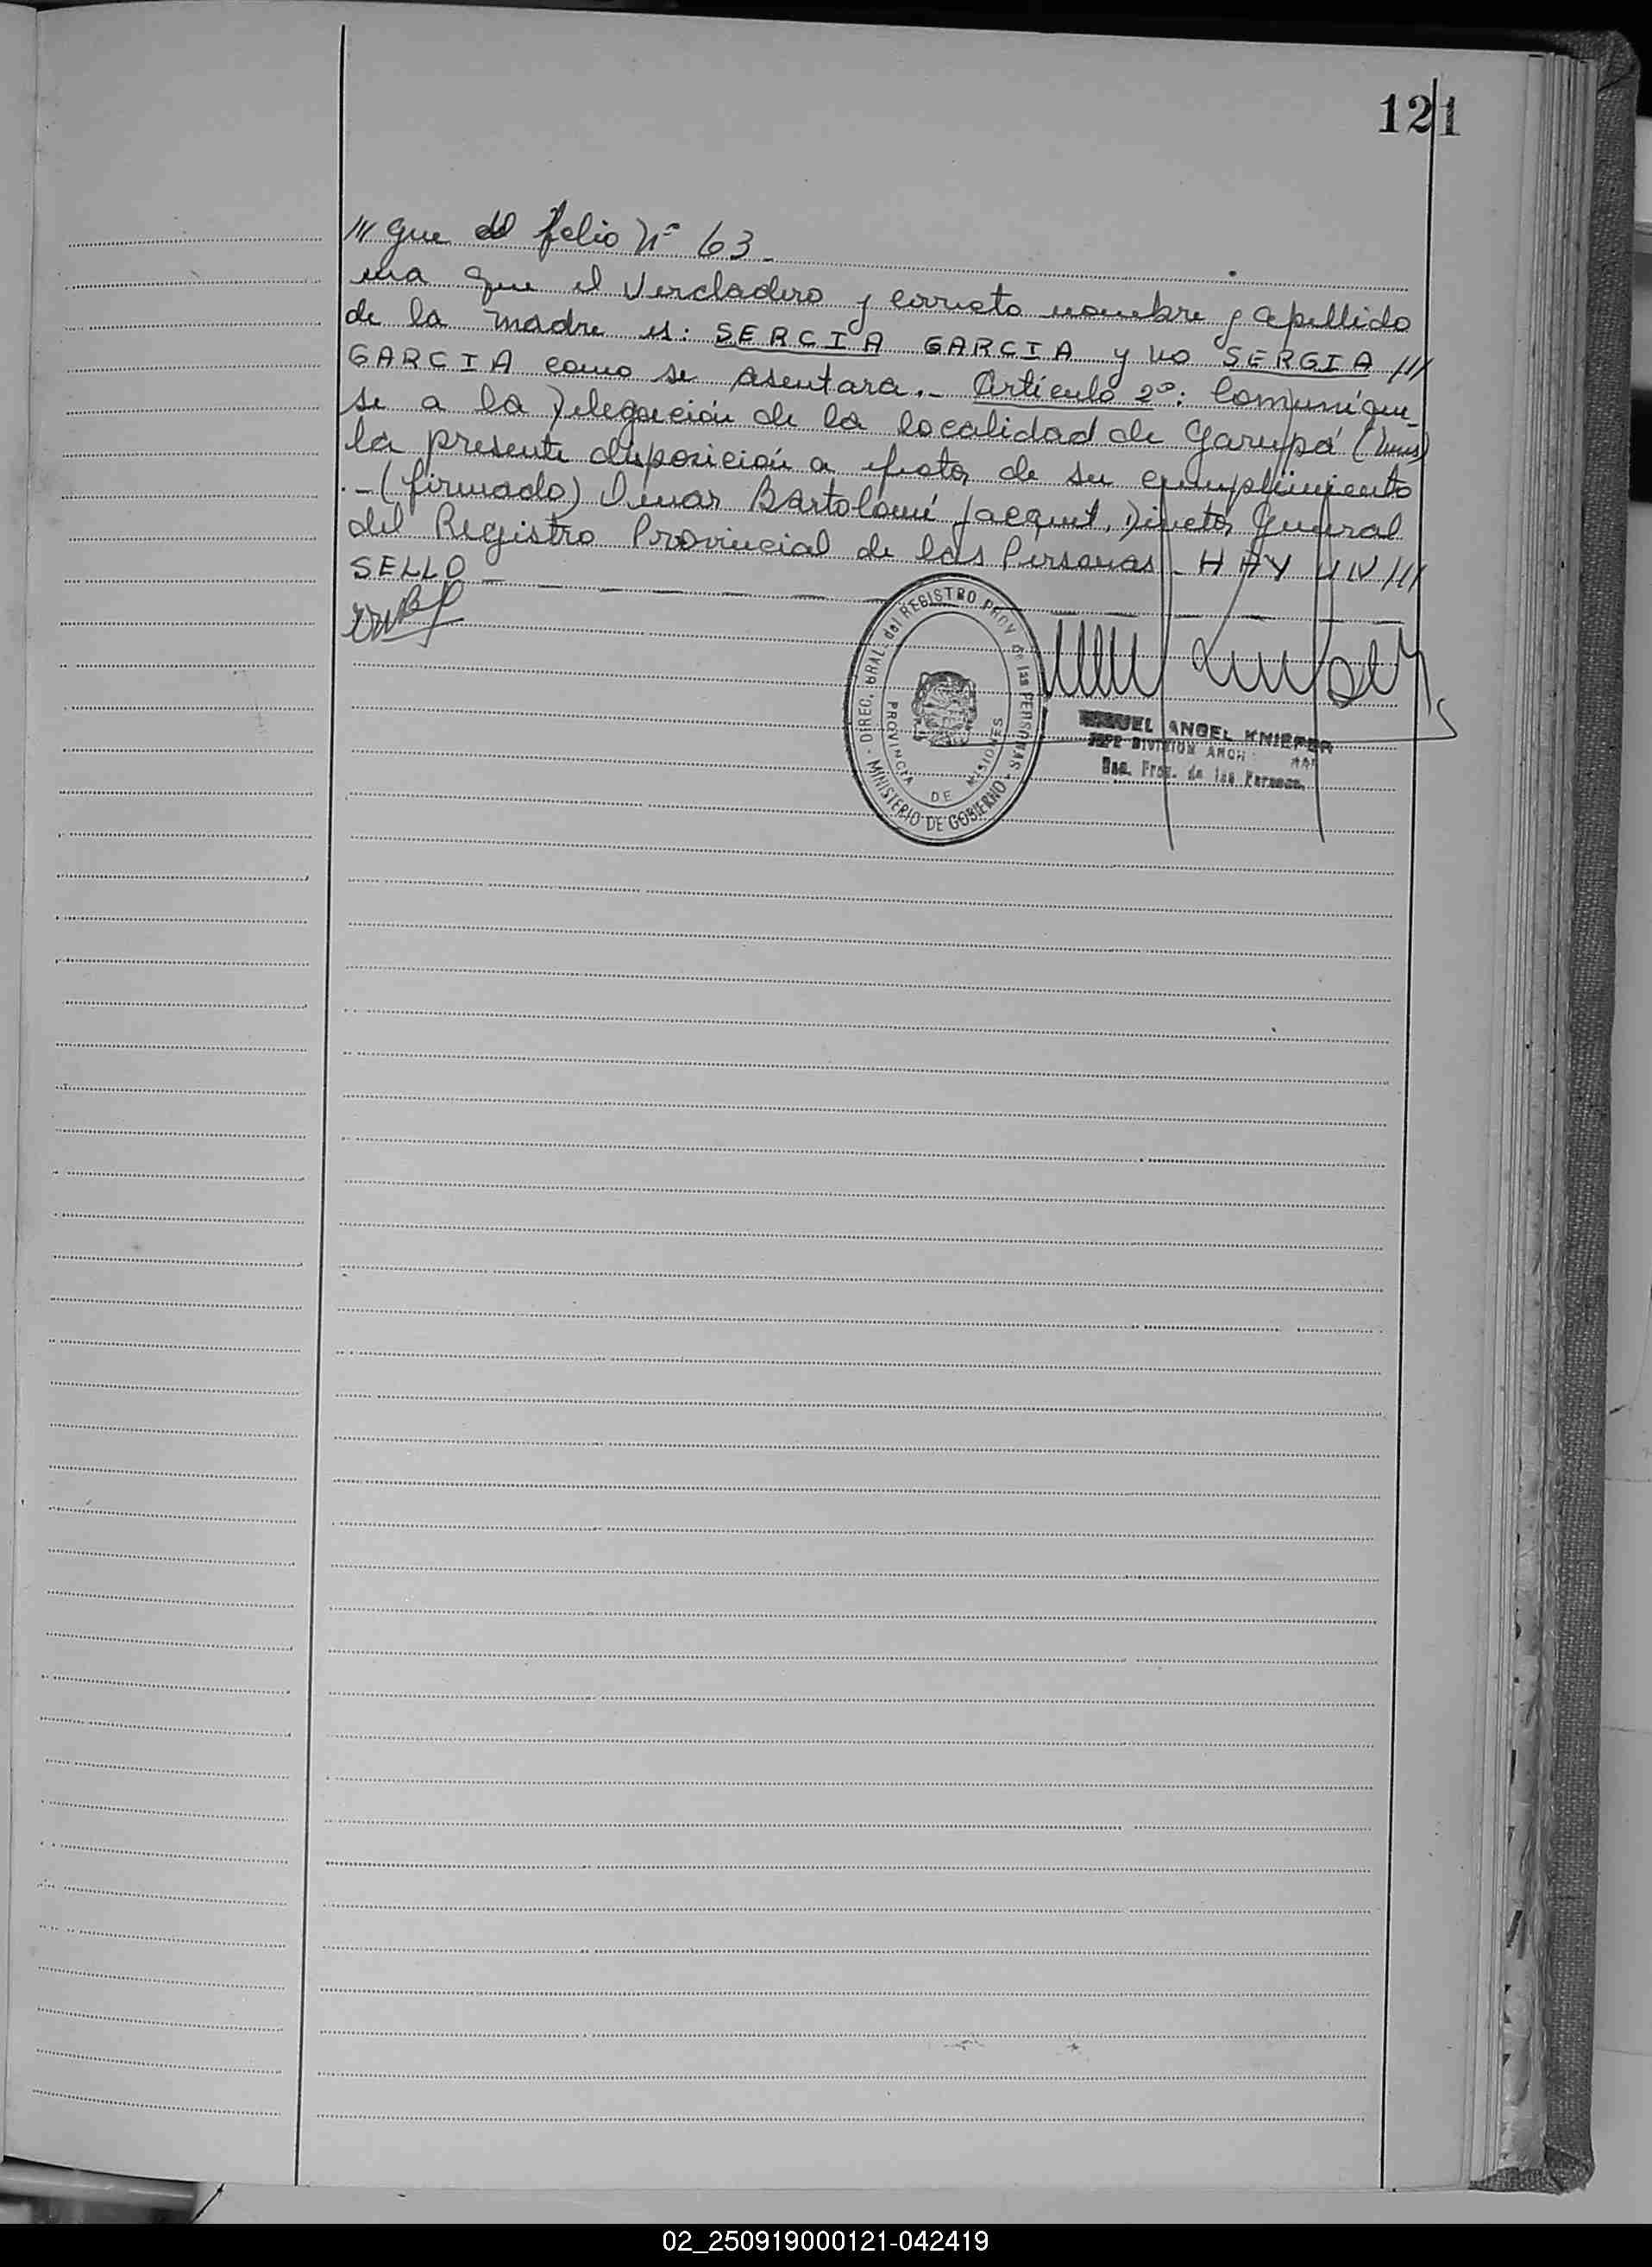 121
/// que del folio Nº 63.-
ma que el verdadero y correcto nombre y apellido
de la madre es: SERCIA GARCIA y no SERGIA ///
GARCIA como se asentara.- Artículo 2º: Comuníque_
se a la Delegación de la localidad de Garupá (Mnes)
la presente disposición a efectos de su cumplimiento
.-(firmado) Bartolomé Jacquet, Director General
del Registro Provincial de las Personas - HAY UN ///
SELLO
DIREC. GRAL. del REGISTRO PROV de las PERSONAS
MINISTERIO DE GOBIERNO
PROVINCIA DE MISIONES
MIGUEL ANGEL KNIEPER
JEFE DIVISION ARCH
Prov. de las Personas
02_250919000121-042419